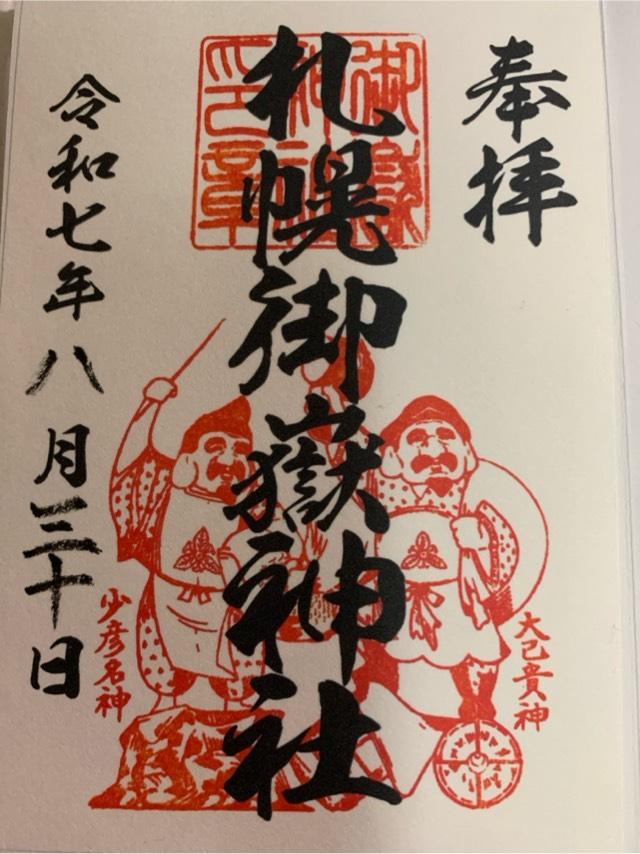 奉拝
札幌御嶽神社
令和七年八月三十日
御嶽
神社
印章
大己貴神
少彦名神